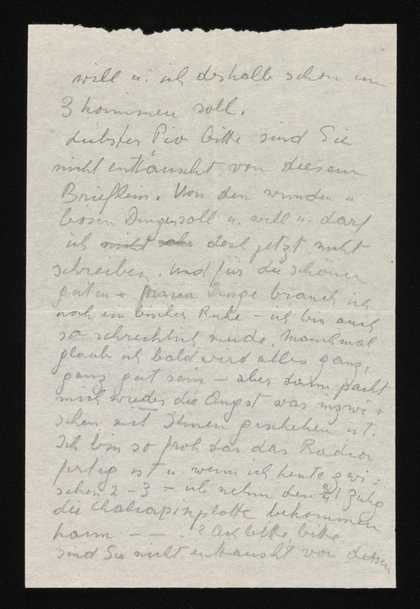 will u. ich deshalb schon um
3 kommen soll.
Liebster Pio bitte sind Sie
nicht enttäuscht von diesem
Brieflein. Von den wunden u
bösen Dingen soll u. will u. darf
ich nicht mehr doch jetzt nicht
schreiben. Und für die schönen
guten + Dinge brauch ich
noch ein bischen Ruhe - ich bin auch
so schrecklich müde. Manchmal
glaub ich bald wird alles ganz,
ganz gut sein - aber dann packt
mich wieder die Angst was inzwi =
schen mit Ihnen geschehen ist.
Ich bin so froh das das Radior
fertig ist u wenn ich heute zwi =
schen 2 - 3 - ich nehm den Zug
die Chaliapinplatte bekommen
kann - - . ? Ach bitte, bitte
sind Sie nicht enttäuscht von diesem